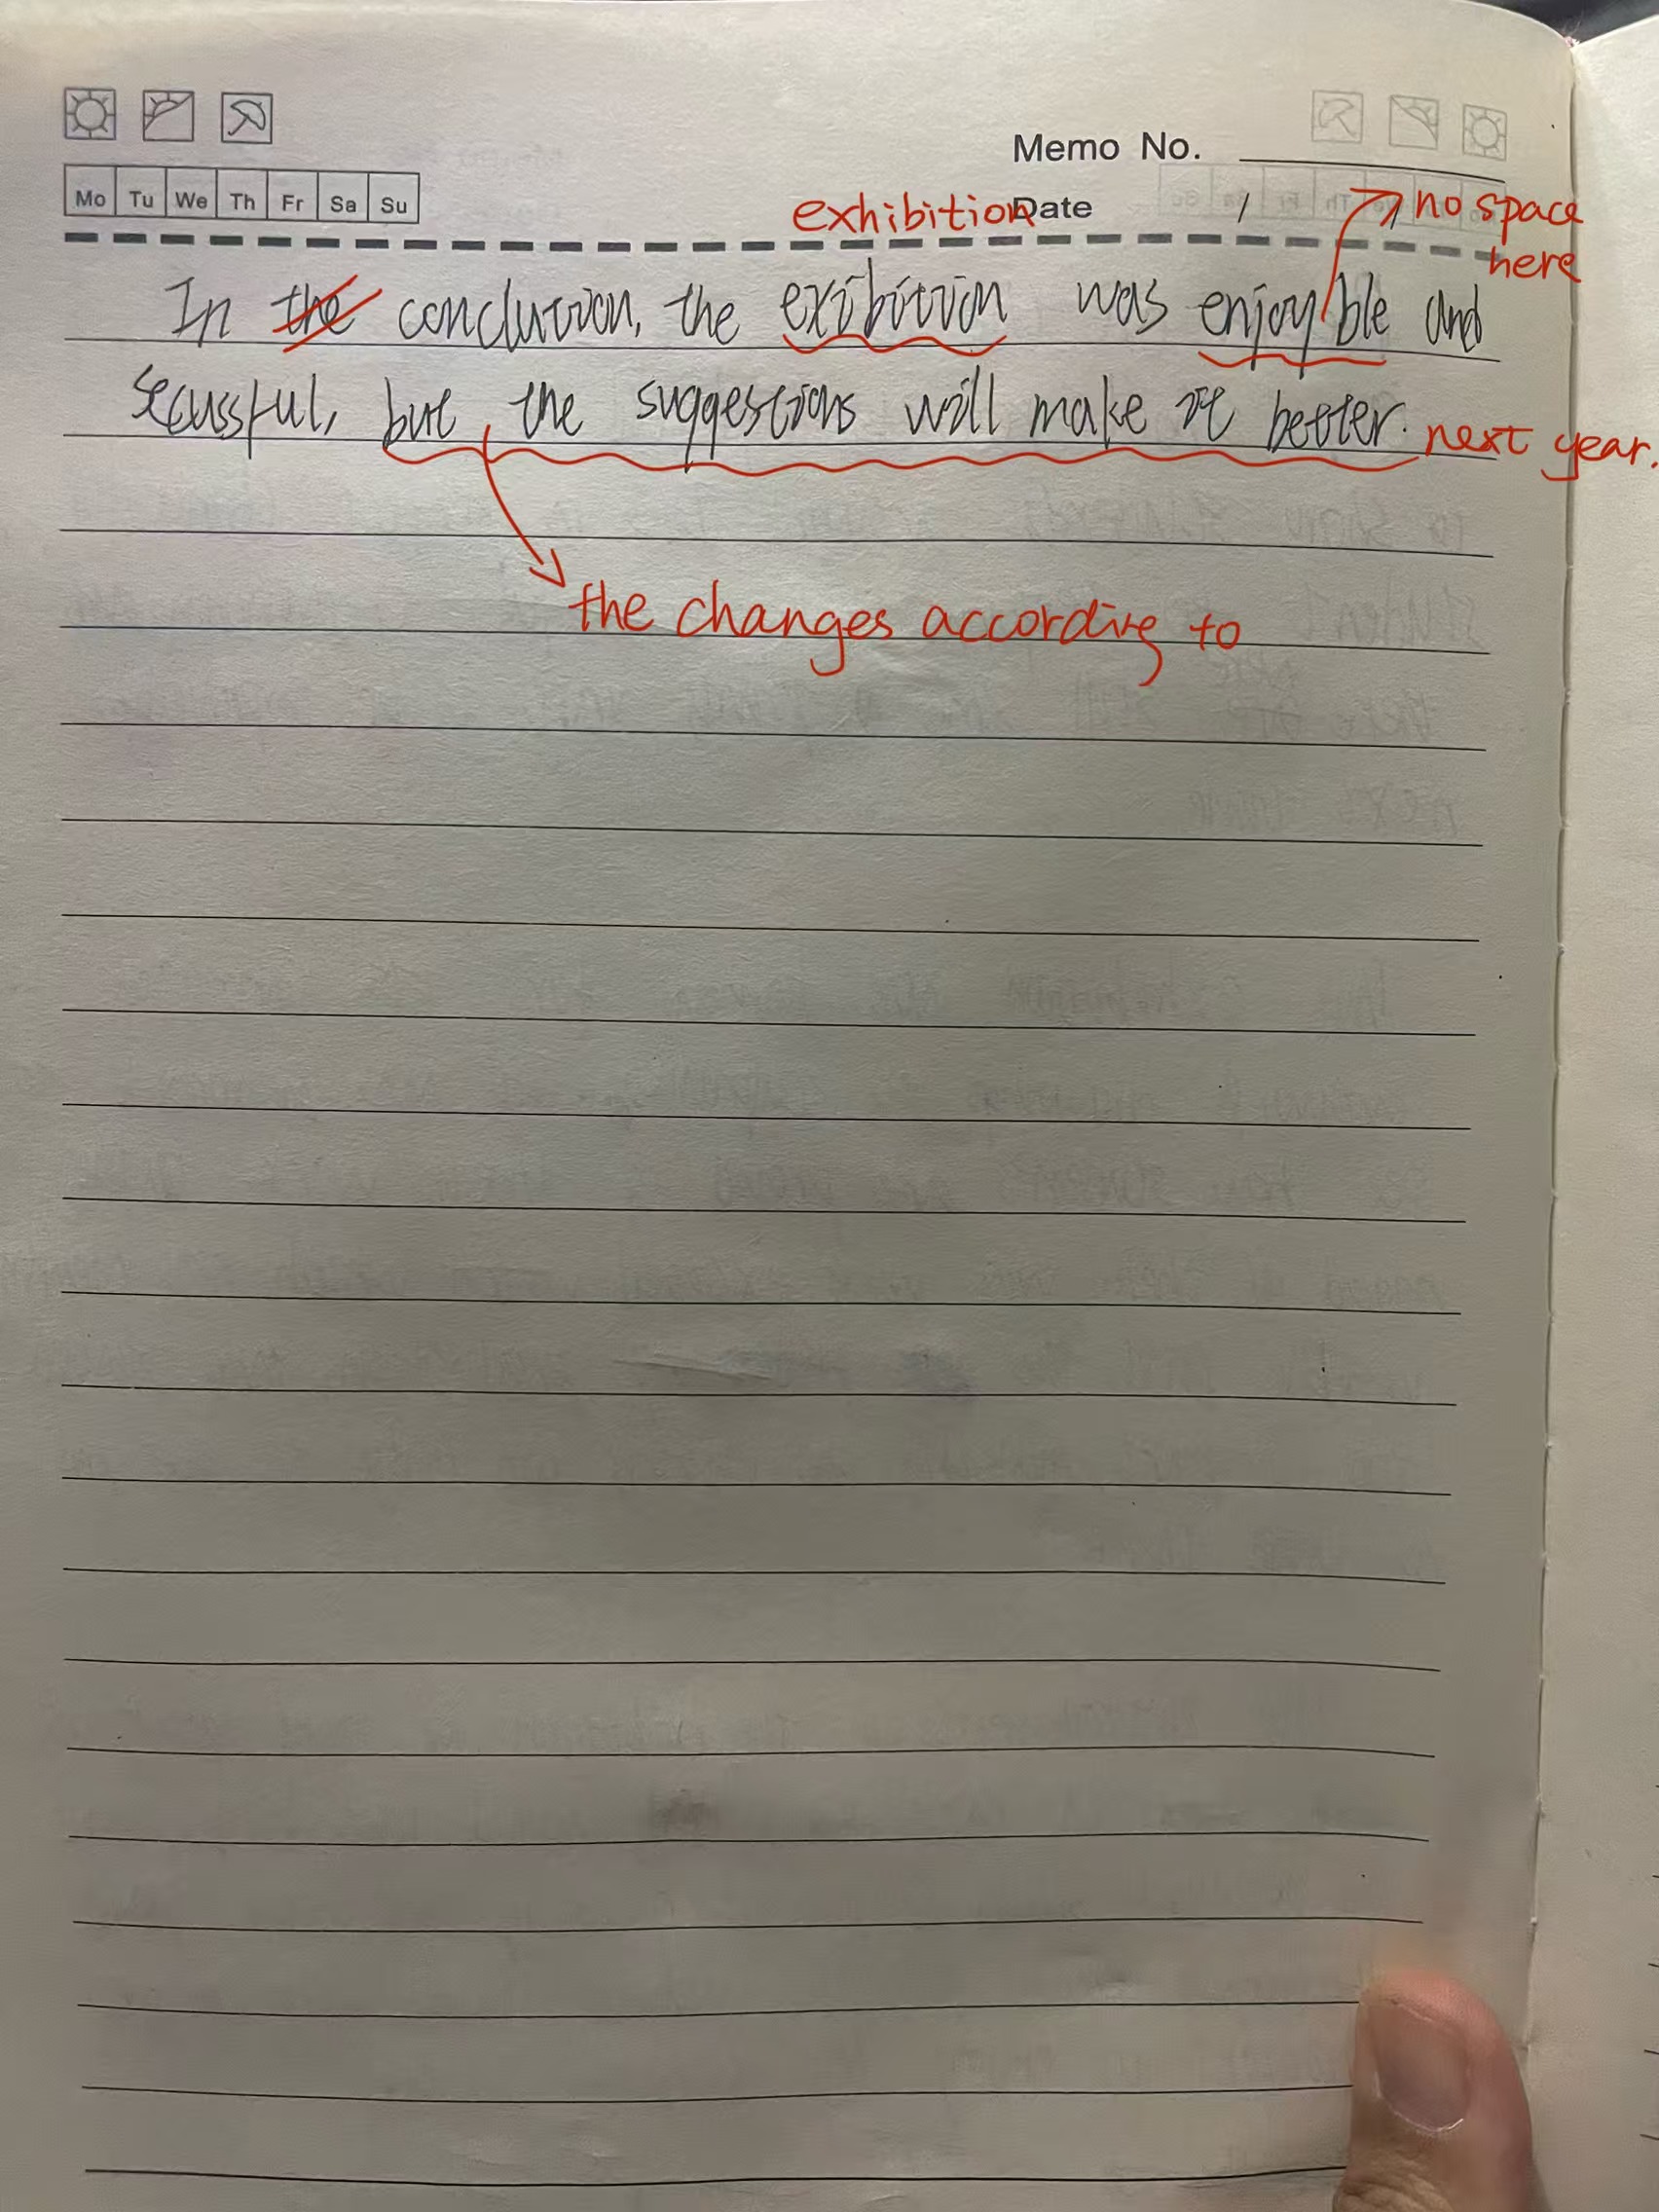 Memo No.
Mo Tu We Th Fr Sa Su
exhibition Date / / no space
here
In the conclution, the exibition was enjoy ble and
secussful, but, the suggestions will make it better. next year.
the changes according to